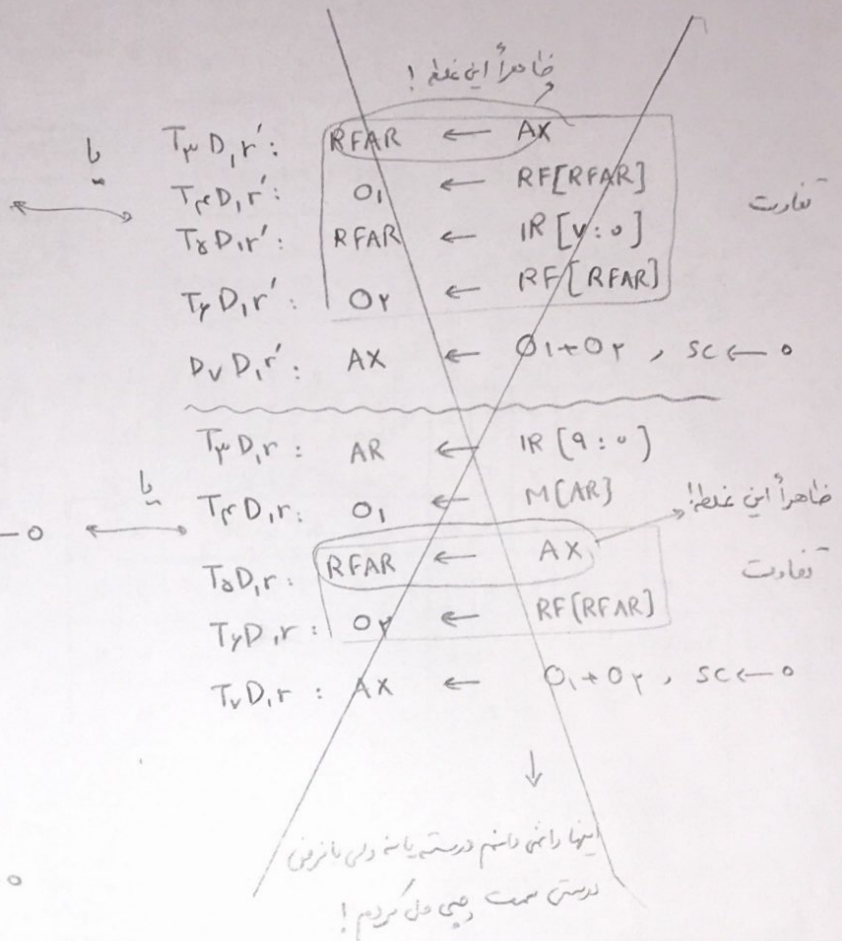 ظاهراً این غلطه!
یا T۳D₁r′: RFAR ← AX
T۴D₁r′: O₁ ← RF[RFAR] تفاوت
T۵D₁r′: RFAR ← IR[۷:۰]
T۶D₁r′: O۲ ← RF[RFAR]
D۷D₁r′: AX ← O₁+O۲ , SC←۰
T۳D₁r: AR ← IR[۹:۰]
یا T۴D₁r: O₁ ← M[AR] ظاهراً این غلطه!
T۵D₁r: RFAR ← AX تفاوت
T۶D₁r: O۲ ← RF[RFAR]
T۷D₁r: AX ← O₁+O۲ , SC←۰
اینها را نمی دانم درسته یا نه ولی با فرض
درستی سمت چپی حل کردم!